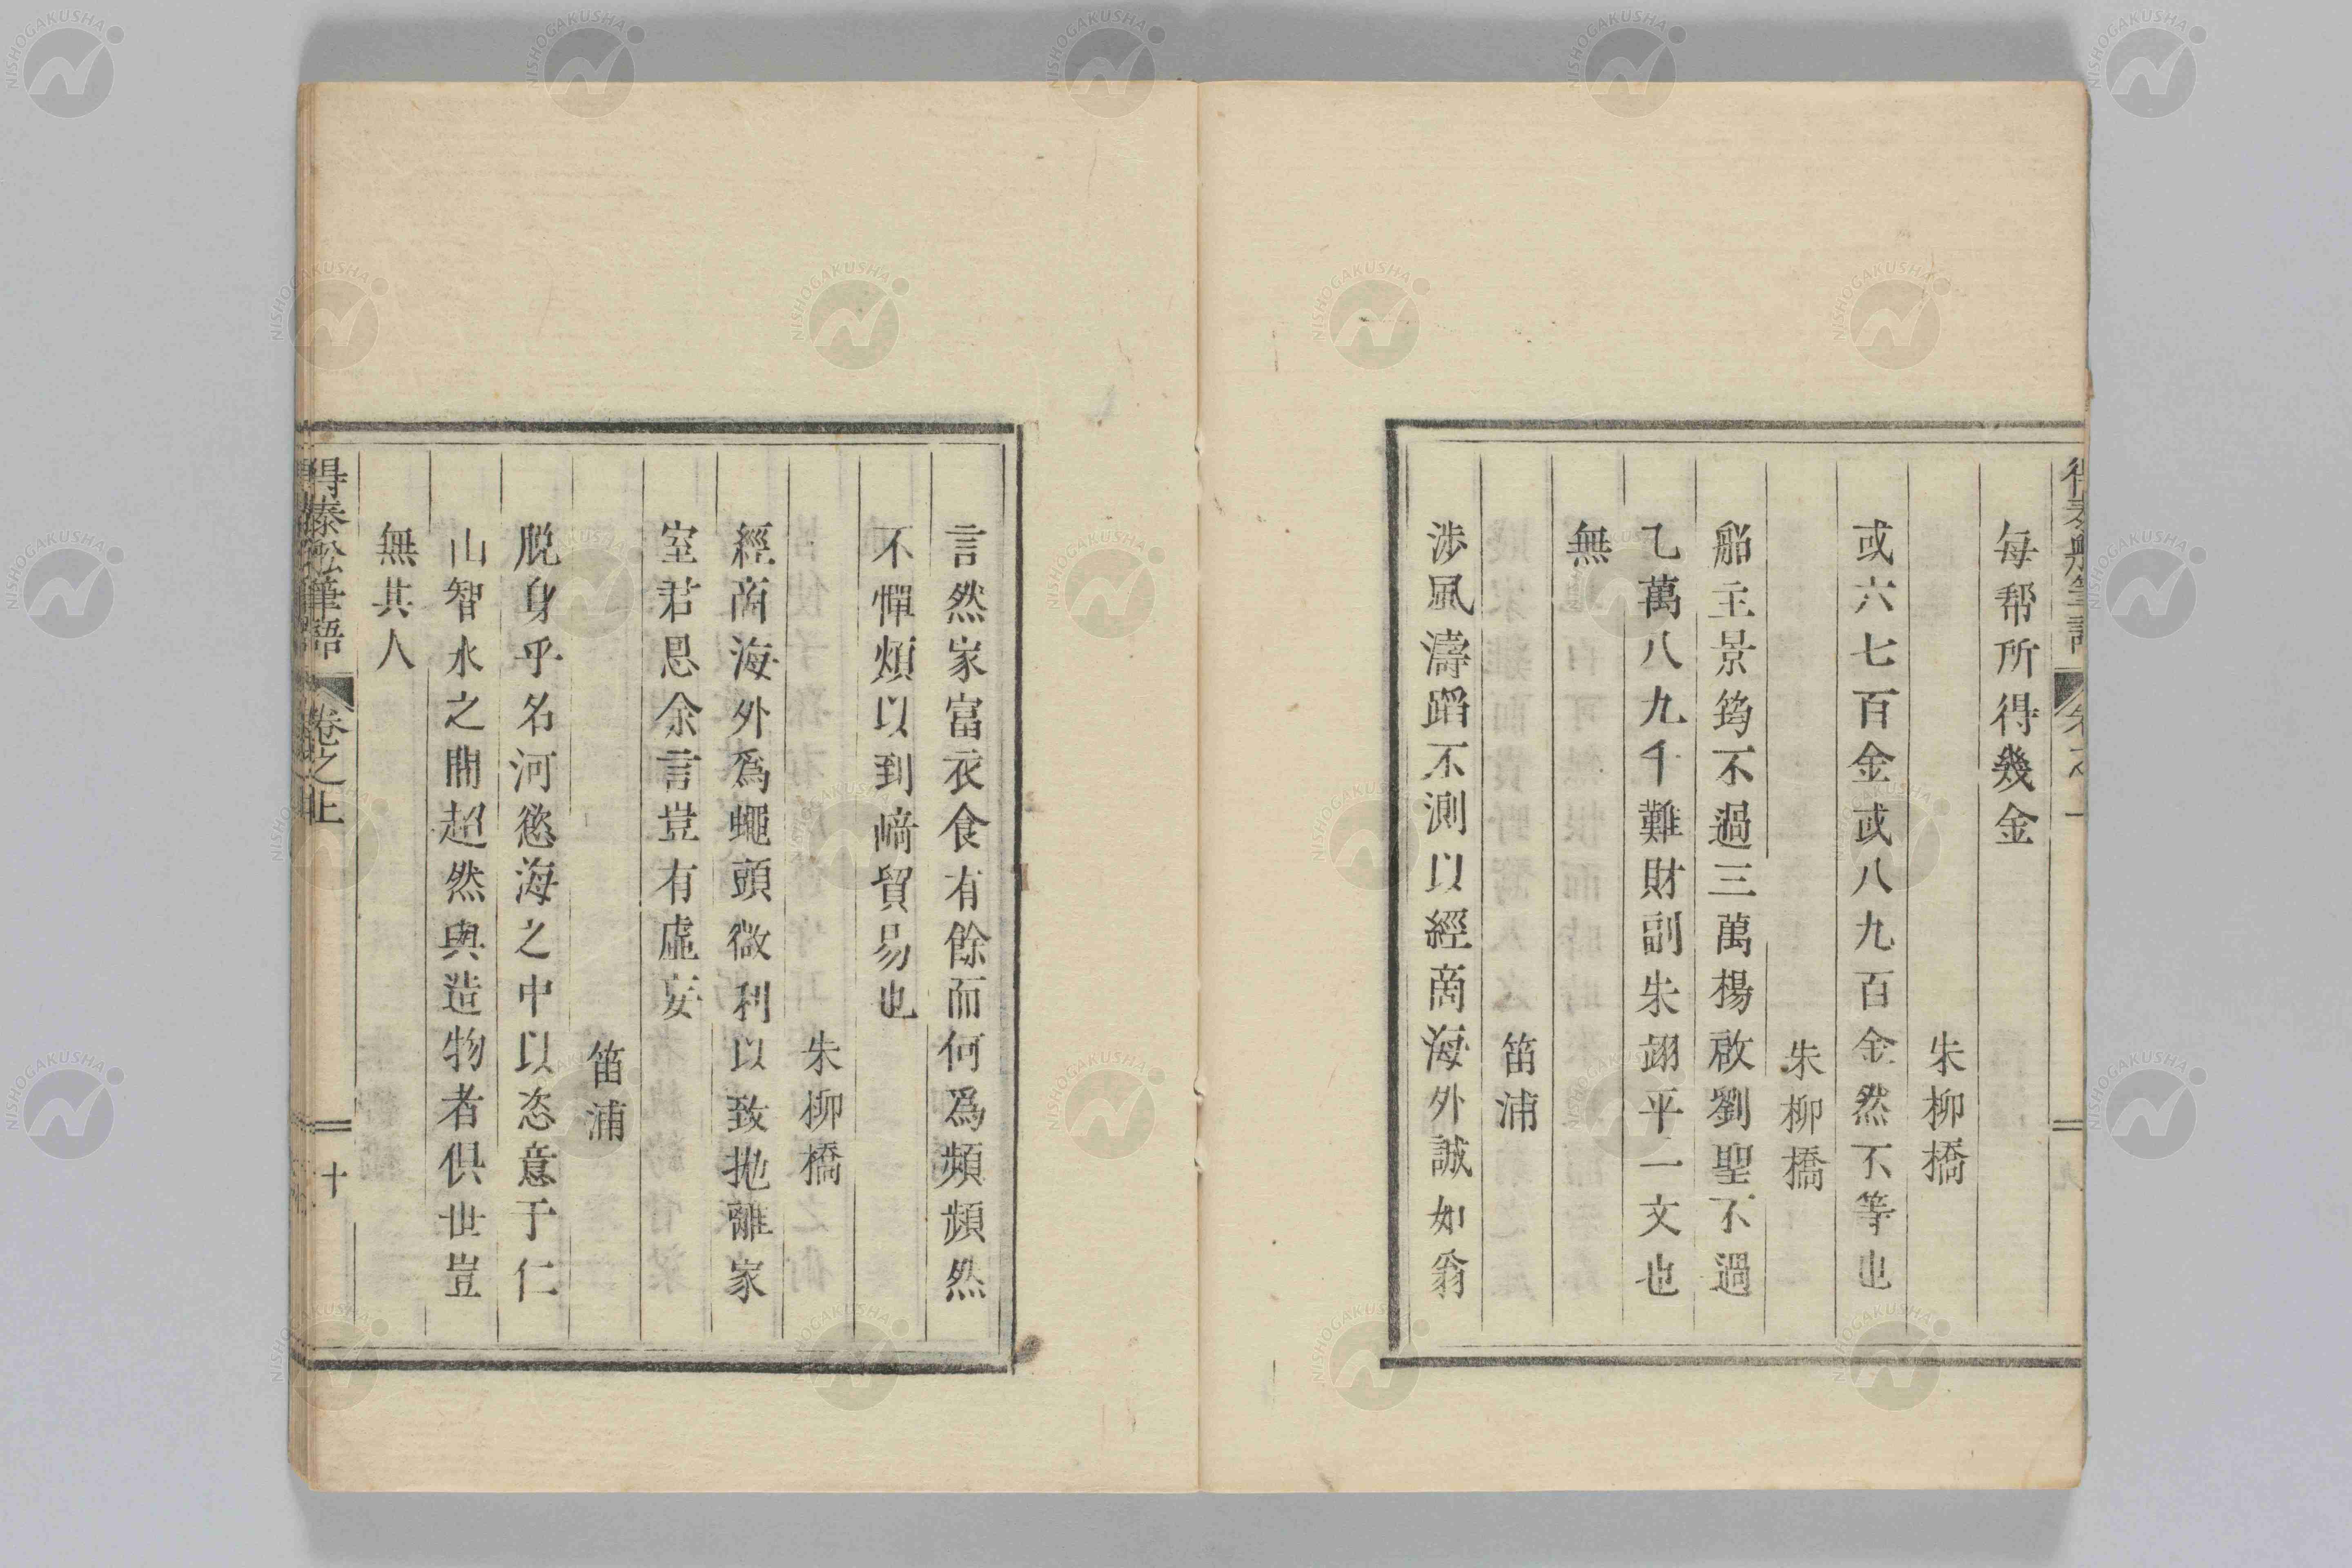 每幇所得幾金
朱柳橋
或六七百金或八九百金然不等也
朱柳橋
船主景筠不過三萬楊啟劉聖不過
乙萬八九千難財副朱翊平一文也
無
笛浦
渉風濤蹈不測以經商海外誠如翁
言然家富衣食有餘而何爲頻頻然
不憚煩以到﨑貿易也
朱柳橋
經商海外爲蠅頭微利以致抛離家
室君思余言豈有虛妄
笛浦
脫身乎名河慾海之中以恣意于仁
山智水之閒超然與造物者俱世豈
無其人
得泰船筆語 卷之上 十
NISHOGAKUSHA